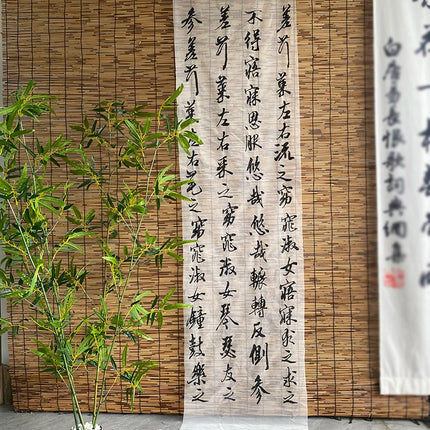 白居易長恨歌詞
差荇菜左右流之窈窕淑女寤寐求之求之
不得寤寐思服悠哉悠哉輾轉反側參
差荇菜左右采之窈窕淑女琴瑟友之
參差荇菜左右芼之窈窕淑女鐘鼓樂之